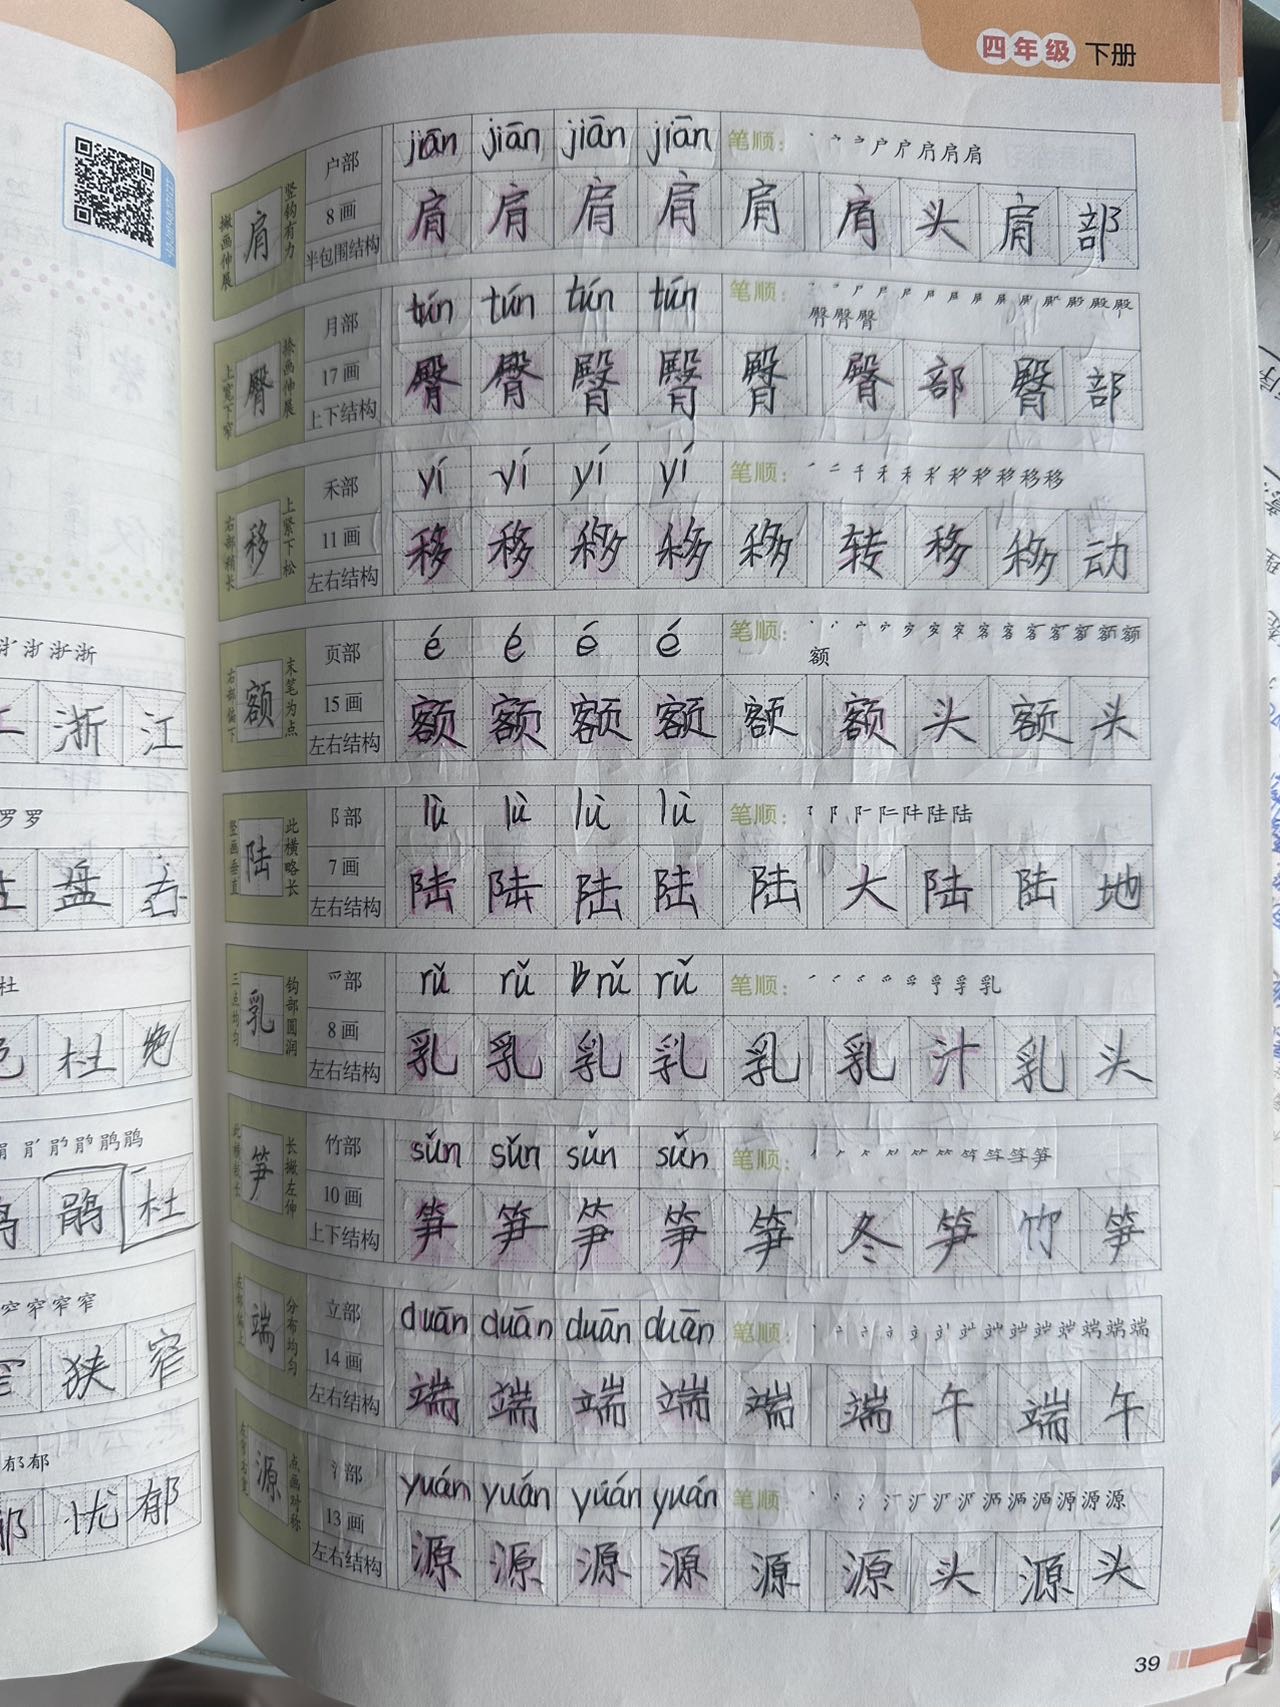 四年级 下册
撇画伸展 肩 竖钩有力
户部 jiān jiān jiān jiān 笔顺:
8画
半包围结构
肩 肩 肩 肩 肩 肩 头 肩 部
上宽下窄 臀 捺画伸展
月部 tún tún tún tún 笔顺:
17画
上下结构
臀 臀 臀 臀 臀 臀 部 臀 部
右部稍长 移 上紧下松
禾部 yí yí yí yí 笔顺:
11画
左右结构
移 移 移 移 移 转 移 移 动
右部偏下 额 末笔为点
页部 é é é é 笔顺:
额
15画
左右结构
额 额 额 额 额 额 头 额 头
竖画垂直 陆 此横略长
阝部 lù lù lù lù 笔顺:
7画
左右结构
陆 陆 陆 陆 陆 大 陆 陆 地
三点均匀 乳 钩部圆润
爫部 rǔ rǔ rǔ rǔ 笔顺:
8画
左右结构
乳 乳 乳 乳 乳 乳 汁 乳 头
此横较长 笋 长撇左伸
竹部 sǔn sǔn sǔn sǔn 笔顺:
10画
上下结构
笋 笋 笋 笋 笋 冬 笋 竹 笋
左部偏上 端 分布均匀
立部 duān duān duān duān 笔顺:
14画
左右结构
端 端 端 端 端 端 午 端 午
左窄右宽 源 点画对称
氵部 yuán yuán yuán yuán 笔顺:
13画
左右结构
源 源 源 源 源 源 头 源 头
39
浙 江
罗 罗
盘
杜
杜 绝
鹃 杜
窄 窄 窄 窄
狭 窄
郁 郁
忧 郁